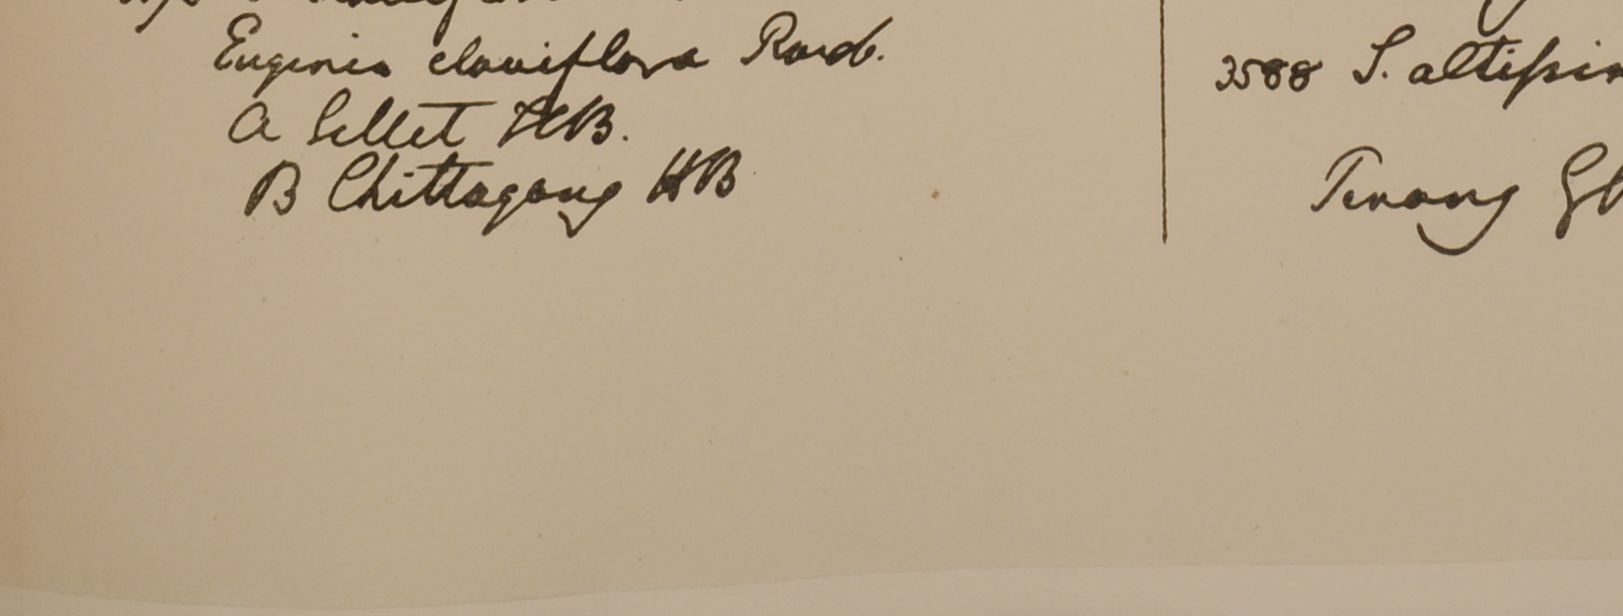 Eugenia claviflora Roxb.
A Sillet HB.
B Chittagong HB
3588 S. altissim
Penang